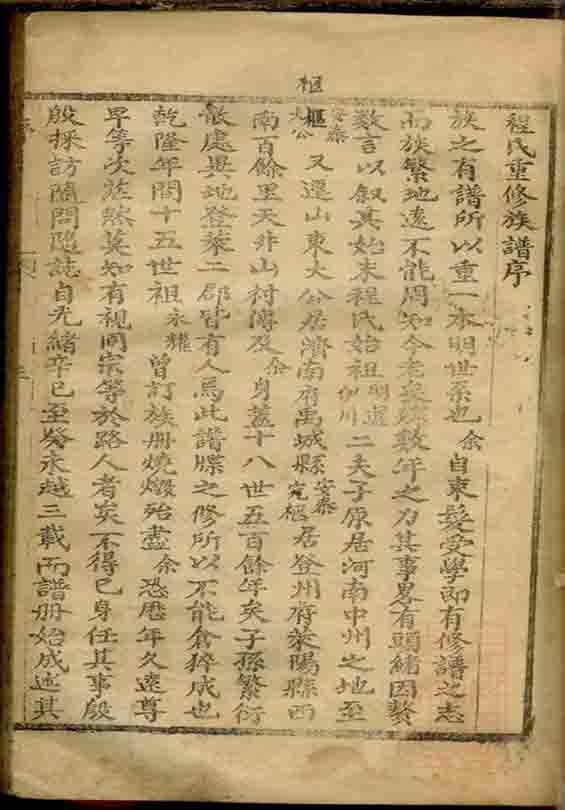 樞
程氏重修族譜序
族之有譜所以重一本明世系也余自束髮受學即有修譜之志
而族繁地遠不能周知今老矣際數年之力其事畧有頭緒因贅
數言以叙其始末程氏始祖明道伊川二夫子原居河南中州之地至
安泰樞大公又遷山東大公居濟南府禹城縣安泰樞居登州府萊陽縣西
南百餘里天井山村傳及余身蓋十八世五百餘年矣子孫繁衍
散處異地登萊二郡皆有人焉此譜牒之修所以不能倉猝成也
乾隆年間十五世祖永耀曾訂族册燒燬殆盡余恐歷年久遠尊
卑等次茫然莫知有視同宗等於路人者矣不得已身任其事殷
殷採訪隨問隨誌自光緒辛巳至癸未越三載而譜册始成述其